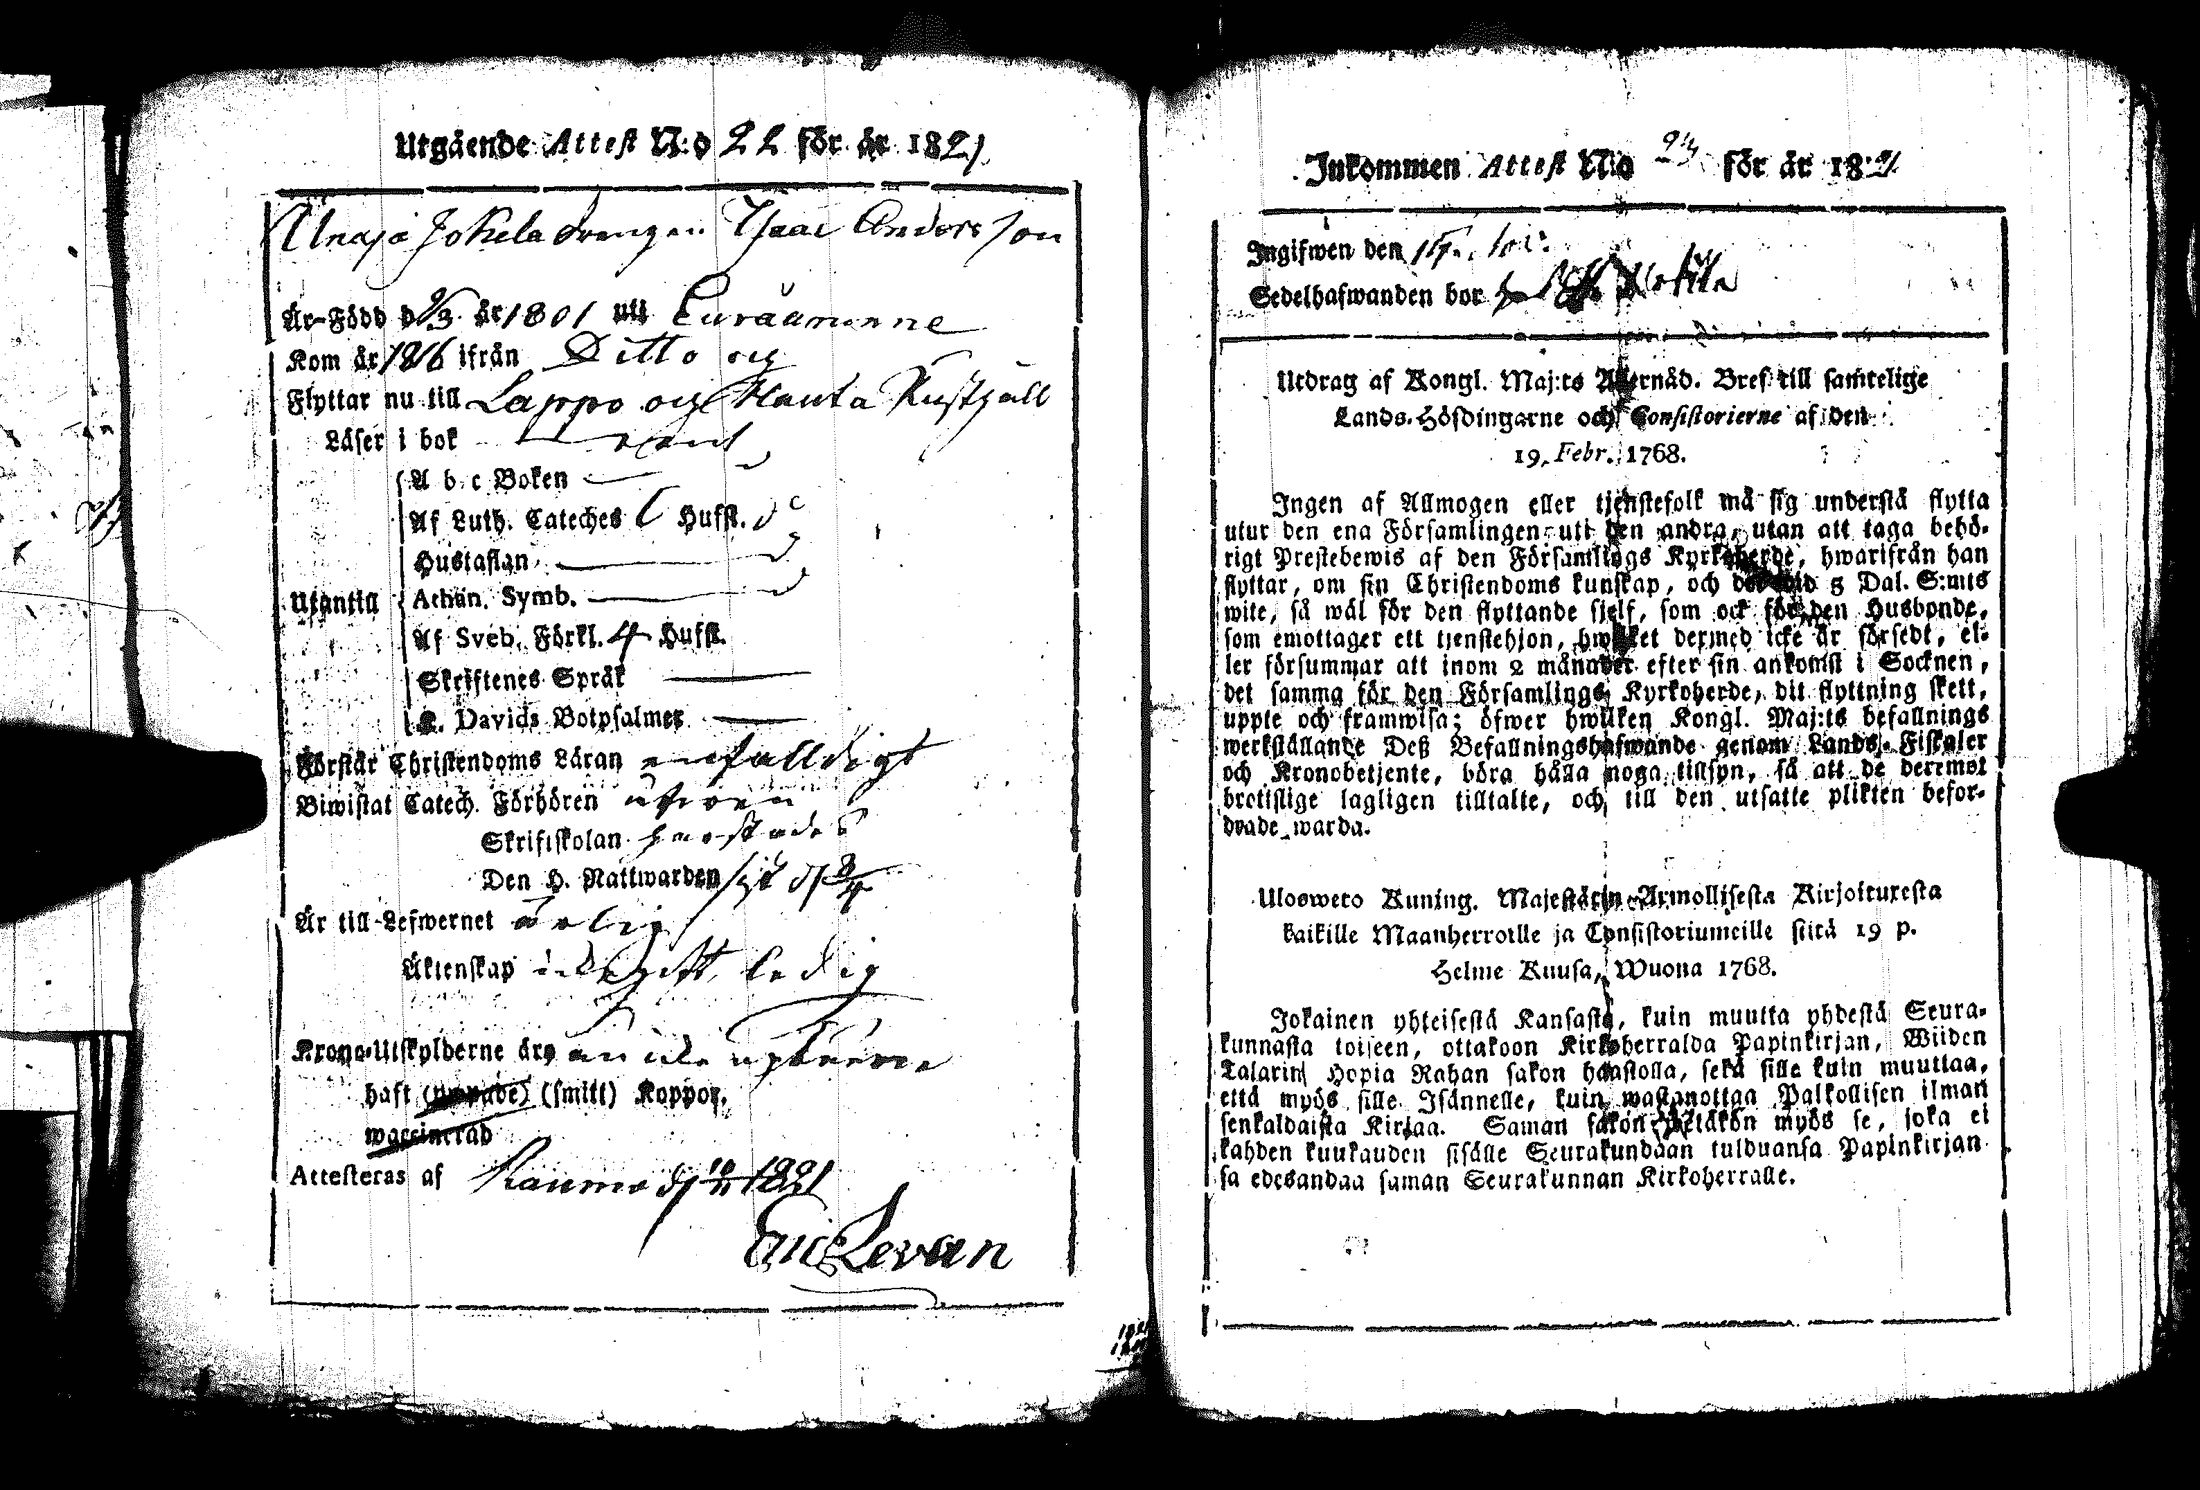 Utgående Attest N:o 22 för år 1821.
Unaja Jokela drengen Isaac Andersson
Är Född d 9/3 år 1801 uti Euraåminne
Kom år 1816 ifrån Ditto og
Flyttar nu till Lappo og Hauta Kustgäll
Läser i bok rent
A b c Boken
Af Luth. Cateches Hufst.
Hustaflan
Utantill Athan. Symb.
Af Sveb. Förkl. 4 Hufst.
Skriftenes Språk
K. Davids Botpsalmer
Förstår Christendoms Läran enfalldigt
Biwistat Catech. Förhören
Skriftskolan
Den H. Nattwarden sist d
Är till Lefwernet ärlig
Äktenskap ledig
Krono-Utskylderne äro
haft (ympade) (smitt) Koppor.
waccinerad
Attesteras af Raumo d 10/11 1821
Eric Levan
Inkommen Attest N:o för år 1821
Ingifwen den
Sedelhafwanden bor
Utdrag af Kongl. Maj:ts Allernåd. Bref till samtelige
Lands-Höfdingarne och Consistorierne af den
19. Febr. 1768.
Ingen af Allmogen eller tjenstefolk må sig understå flytta
utur den ena Församlingen uti den andra, utan att taga behö-
rigt Prestebewis af den Församlings Kyrkoherde, hwarifrån han
flyttar, om sin Christendoms kunskap, och det wid 5 Dal. S:mts
wite, så wäl för den flyttande sjelf, som ock för den Husbonde,
som emottager ett tjenstehjon, hwilket dermed icke är försedt, el-
ler försummar att inom 2 månader efter sin ankomst i Socknen,
det samma för den Församlings Kyrkoherde, dit flyttning skett,
uppte och framwisa; öfwer hwilken Kongl. Maj:ts befallnings
werkställande Deß Befallningshafwande genom Lands-Fiskaler
och Kronobetjente, böra hålla noga tillsyn, så att de deremot
brottslige lagligen tilltalte, och till den utsatte plikten befor-
drade warda.
Ulosweto Kuning. Majestätin Armollisesta Kirjoituresta
kaikille Maanherroille ja Consistoriumeille siitä 19 p.
Helme Kuusa, Wuona 1768.
Jokainen yhteisestä Kansasta, kuin muutta yhdestä Seura-
kunnasta toiseen, ottakoon Kirkoherralda Papinkirjan, Wiiden
Talarin Hopia Rahan sakon haastolla, sekä sille kuin muuttaa,
että myös sille Isännelle, kuin wastanottaa Palkollisen ilman
senkaldaista Kirjaa. Saman sakon wetäkön myös se, joka ei
kahden kuukauden sisälle Seurakundaan tulduansa Papinkirjan
sa edesandaa saman Seurakunnan Kirkoherralle.